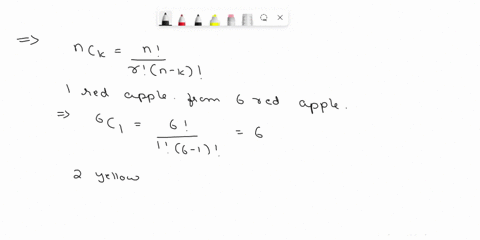 => nCk = n! / r!(n-k)!
1 red apple from 6 red apple.
=> 6C1 = 6! / 1!(6-1)! = 6
2 yellow